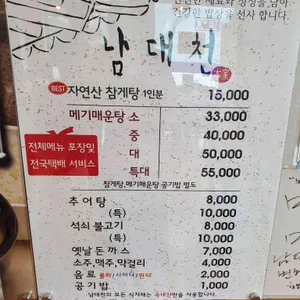 건강한 밥상을 선사 합니다.
남대천
BEST 자연산 참게탕 1인분 15,000
메기매운탕 소 33,000
중 40,000
대 50,000
특대 55,000
전체메뉴 포장및
전국택배 서비스
참게탕,메기매운탕 공기밥 별도
추어탕 8,000
(특) 10,000
석쇠 불고기 8,000
(특) 10,000
옛날 돈까스 7,000
소주,맥주,막걸리 4,000
음료 콜라/사이다/환타 2,000
공기밥 1,000
남대천의 모든 식자재는 국내산만을 사용합니다.